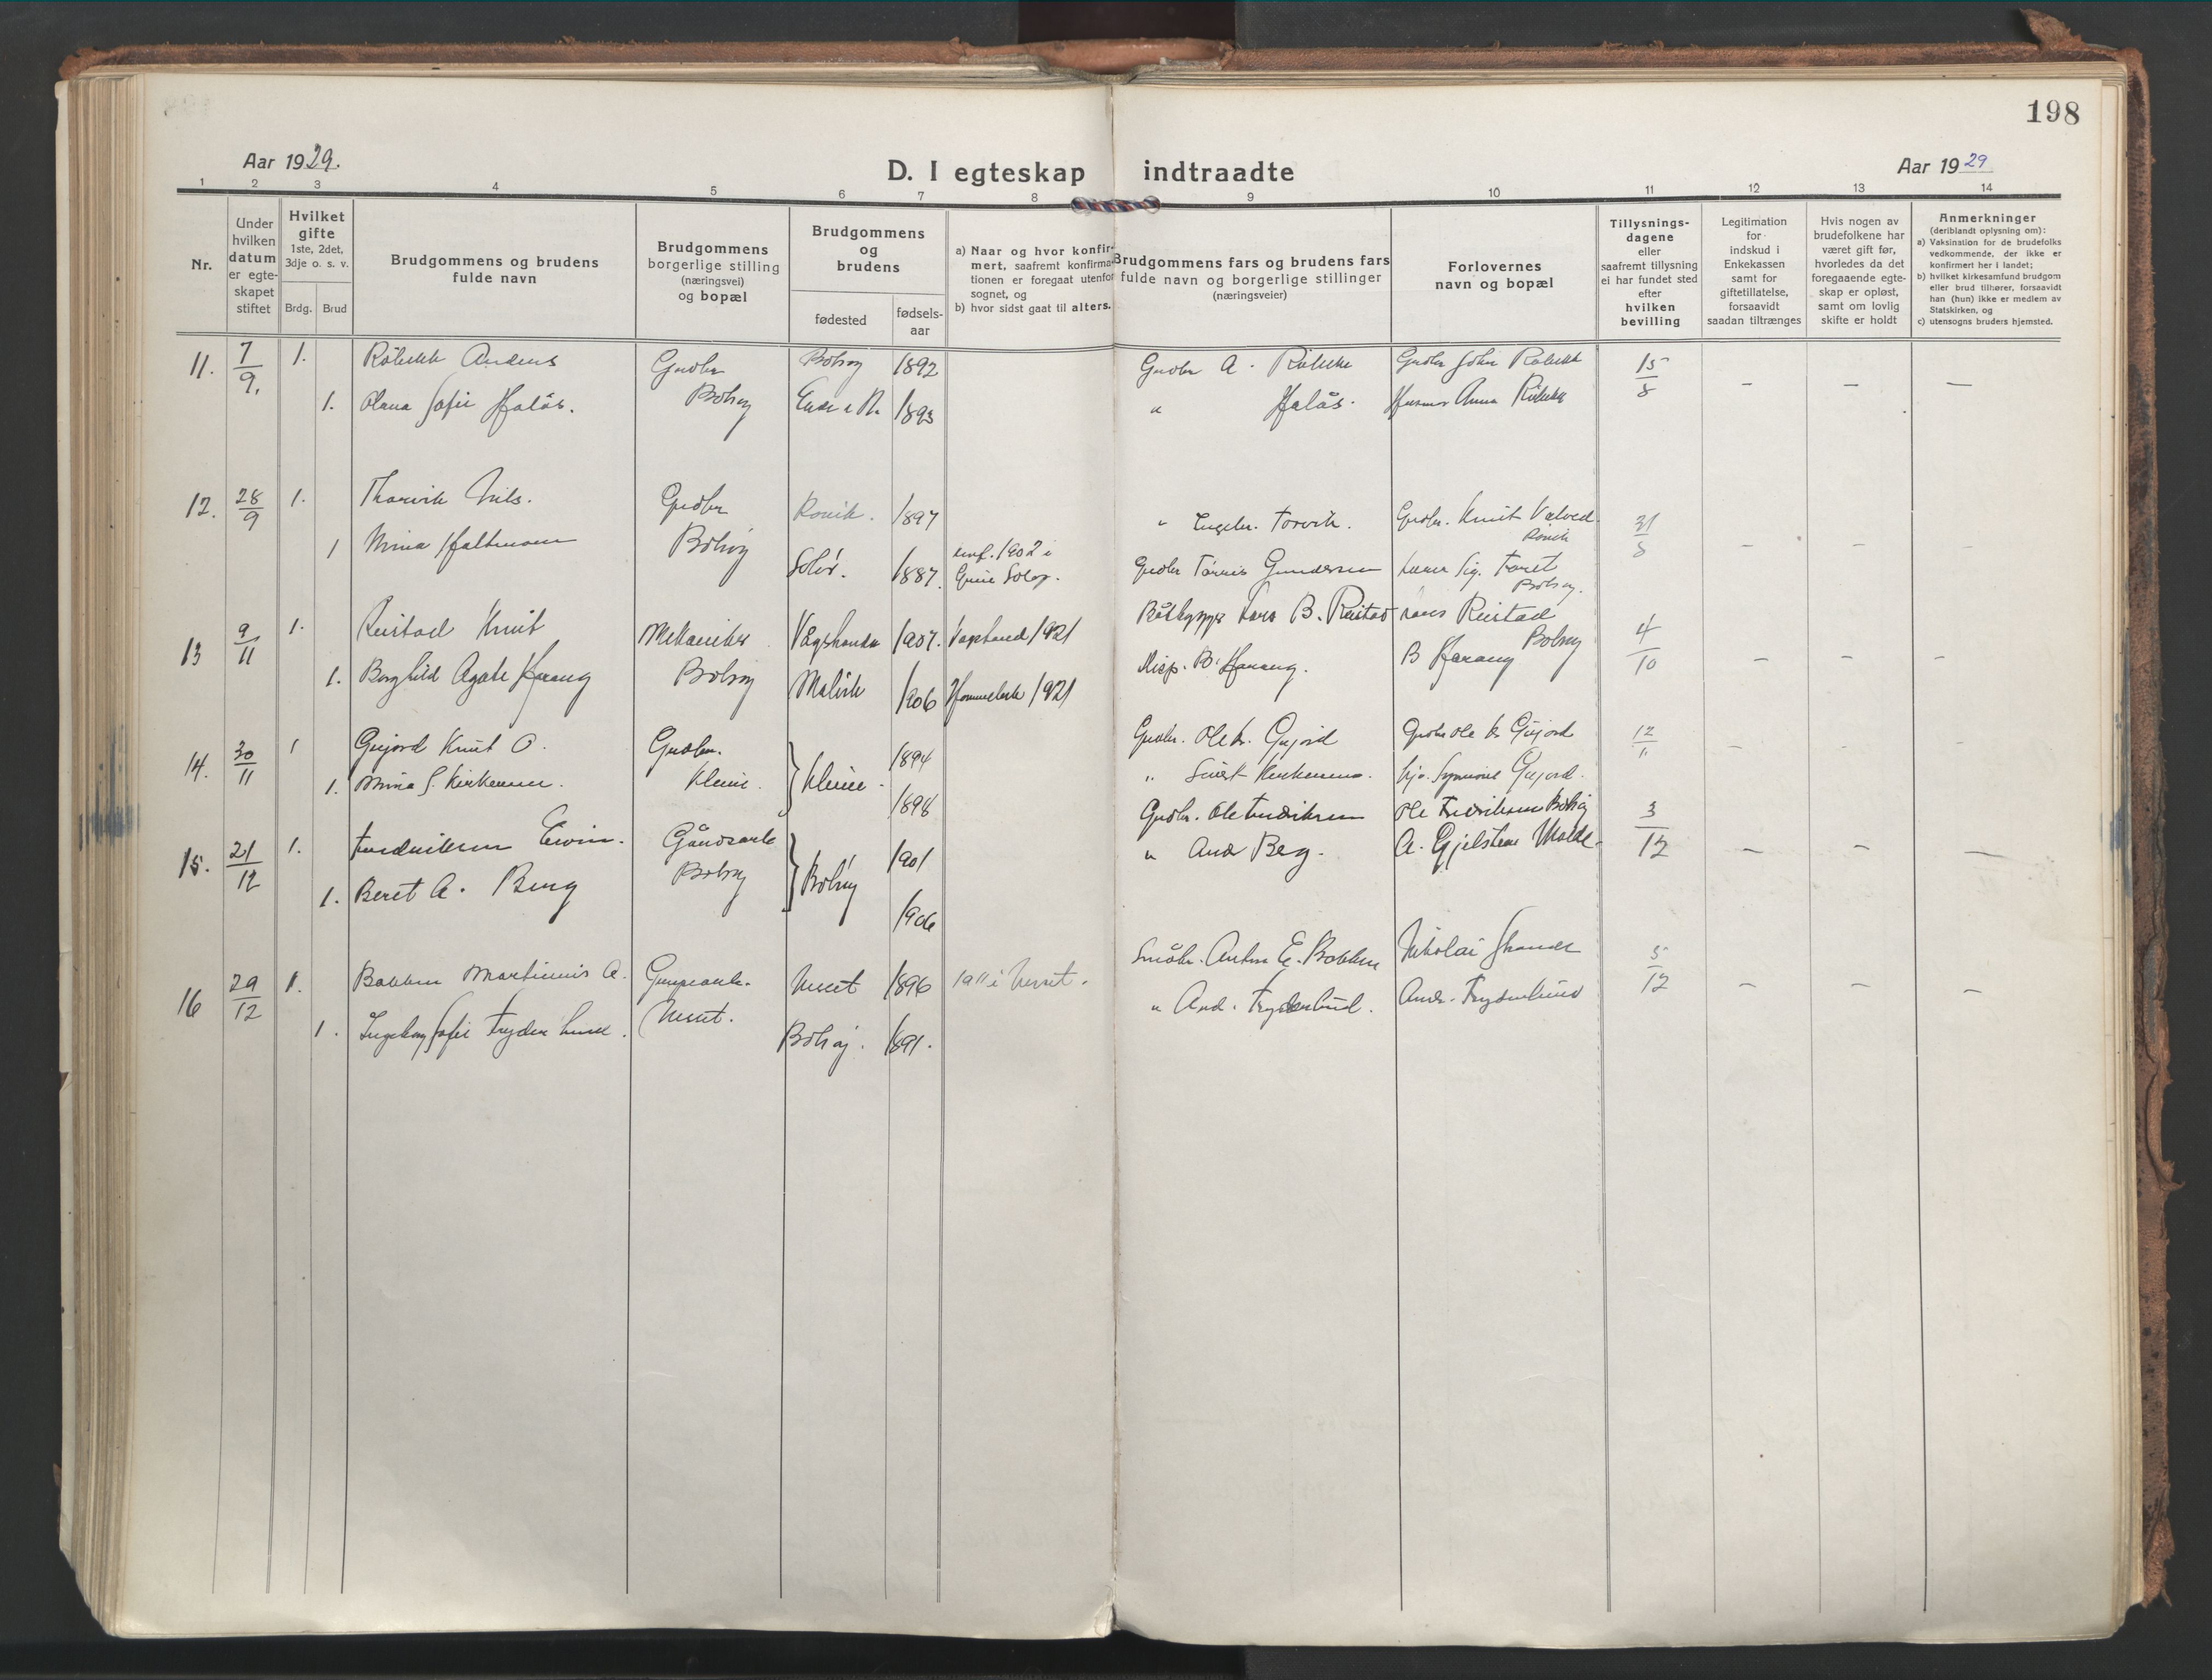 198
Aar 1929.
D. I egteskap indtraadte
Aar 1929
1 2 3 4 5 6 7 8 9 10 11 12 13 14
Nr.
Under
hvilken
datum
er egte-
skapet
stiftet
Hvilket
gifte
1ste, 2det,
3dje o. s. v.
Brdg. Brud
Brudgommens og brudens
fulde navn
Brudgommens
borgerlige stilling
(næringsvei)
og bopæl
Brudgommens
og
brudens
fødested
fødsels-
aar
a) Naar og hvor konfir-
mert, saafremt konfirma-
tionen er foregaat utenfor
sognet, og
b) hvor sidst gaat til alters.
Brudgommens fars og brudens fars
fulde navn og borgerlige stillinger
(næringsveier)
Forlovernes
navn og bopæl
Tillysnings-
dagene
eller
saafremt tillysning
ei har fundet sted
efter
hvilken
bevilling
Legitimation
for
indskud i
Enkekassen
samt for
giftetillatelse,
forsaavidt
saadan tiltrænges
Hvis nogen av
brudefolkene har
været gift før,
hvorledes da det
foregaaende egte-
skap er opløst,
samt om lovlig
skifte er holdt
Anmerkninger
(deriblandt oplysning om):
a) Vaksination for de brudefolks
vedkommende, der ikke er
konfirmert her i landet;
b) hvilket kirkesamfund brudgom
eller brud tilhører, forsaavidt
han (hun) ikke er medlem av
Statskirken, og
c) utensogns bruders hjemsted.
11. 7/9. 1. Røbekk Anders Gaardbr Bolsøy 1892 Gaardbr A. Røbekk Gaardbr John Røbekk 15/8 – – –
1. Olava Sofie Halås. Bolsøy 1893 " Halås. Anna Røbekk
12. 28/9 1. Thorvik Nils. Gardbr Rovik. 1897 " Torvik. Gardbr. Knut 31/8 – – –
1 Mina Bolsøy Solør. 1887. konf. 1902 i Gardbr Gundersen Sig. Toret
Bolsøy.
13 9/11 1. Reistad Knut Mekaniker 1907. 1921 Lars B. Reistad Lars Reistad 4/10 – – –
1. Borghild Agate Harang Bolsøy Malvik 1906 Hommelvik 1921 Disp. B. Harang. B Harang Bolsøy
14. 30/11 1 Gujord Knut O. Gardbr. 1894 Gardbr. Ole K. Gujord Gardbr Ole K. Gujord 12/11 – – –
1. Mina S. Kleive. } Kleive. 1898 " Gujord.
15. 21/12 1. Fredriksen Gårdsarb 1901 Gardbr. Ole Fredriksen Ole Fredriksen Bolsøy 3/12 – – –
1. Beret A. Berg Bolsøy } Bolsøy 1906 " And Berg. A. Gjelstein Molde.
16 29/12 1. Bakken Martinus A. Nesset 1896 1911 i Nesset. Småbr. Anton E. Bakken Nikolai 5/12 – – –
1. Ingeborg Sofie Frydenlund. Nesset. Bolsøy. 1891. " And. Frydenlund. Andr. Frydenlund